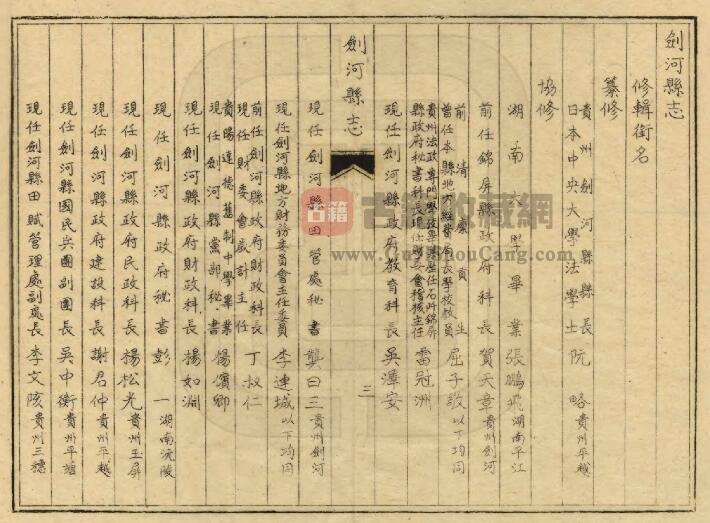 劍河縣志
修輯銜名
纂修
貴州劍河縣縣長
日本中央大學法學士 阮略 貴州平越
協修
湖南 學畢業 張鵬飛 湖南平江
前任錦屏縣政府科長 賀天章 貴州劍河
前清 貢生
曾任本縣地方經費局長學校教員 屈子敬 以下均同
貴州法政專門學校畢業歷任石阡錦屏
縣政府秘書科長現任財委會稽核主任 雷冠洲
現任劍河縣政府教育科長 吳漳安
劍河縣志
三
現任劍河縣田管處秘書 龔曰三 貴州劍河
現任劍河縣地方財務委員會主任委員 李連城 以下均同
前任劍河縣政府財政科長
現任財委會歲計主任 丁叔仁
貴陽達德舊制中學畢業
現任劍河縣黨部秘書 楊濱卿
現任劍河縣政府財政科長 楊如淵
現任劍河縣政府秘書 彭一 湖南沅陵
現任劍河縣政府民政科長 楊松光 貴州玉屏
現任劍河縣政府建設科長 謝君仲 貴州平越
現任劍河縣國民兵團副團長 吳中衡 貴州平塘
現任劍河縣田賦管理處副處長 李文陔 貴州三穗
古籍
古籍收藏網
www.GuJiShouCang.com